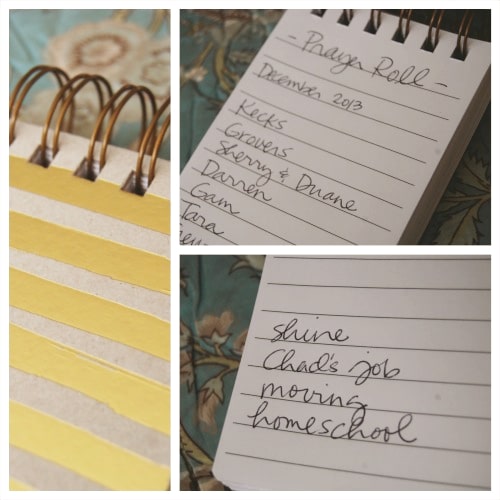 - Prayer Roll -
December 2013
Kecks
Grovers
Sherry & Duane
Darren
Gam
Tara
shine
Chad's job
moving
homeschool